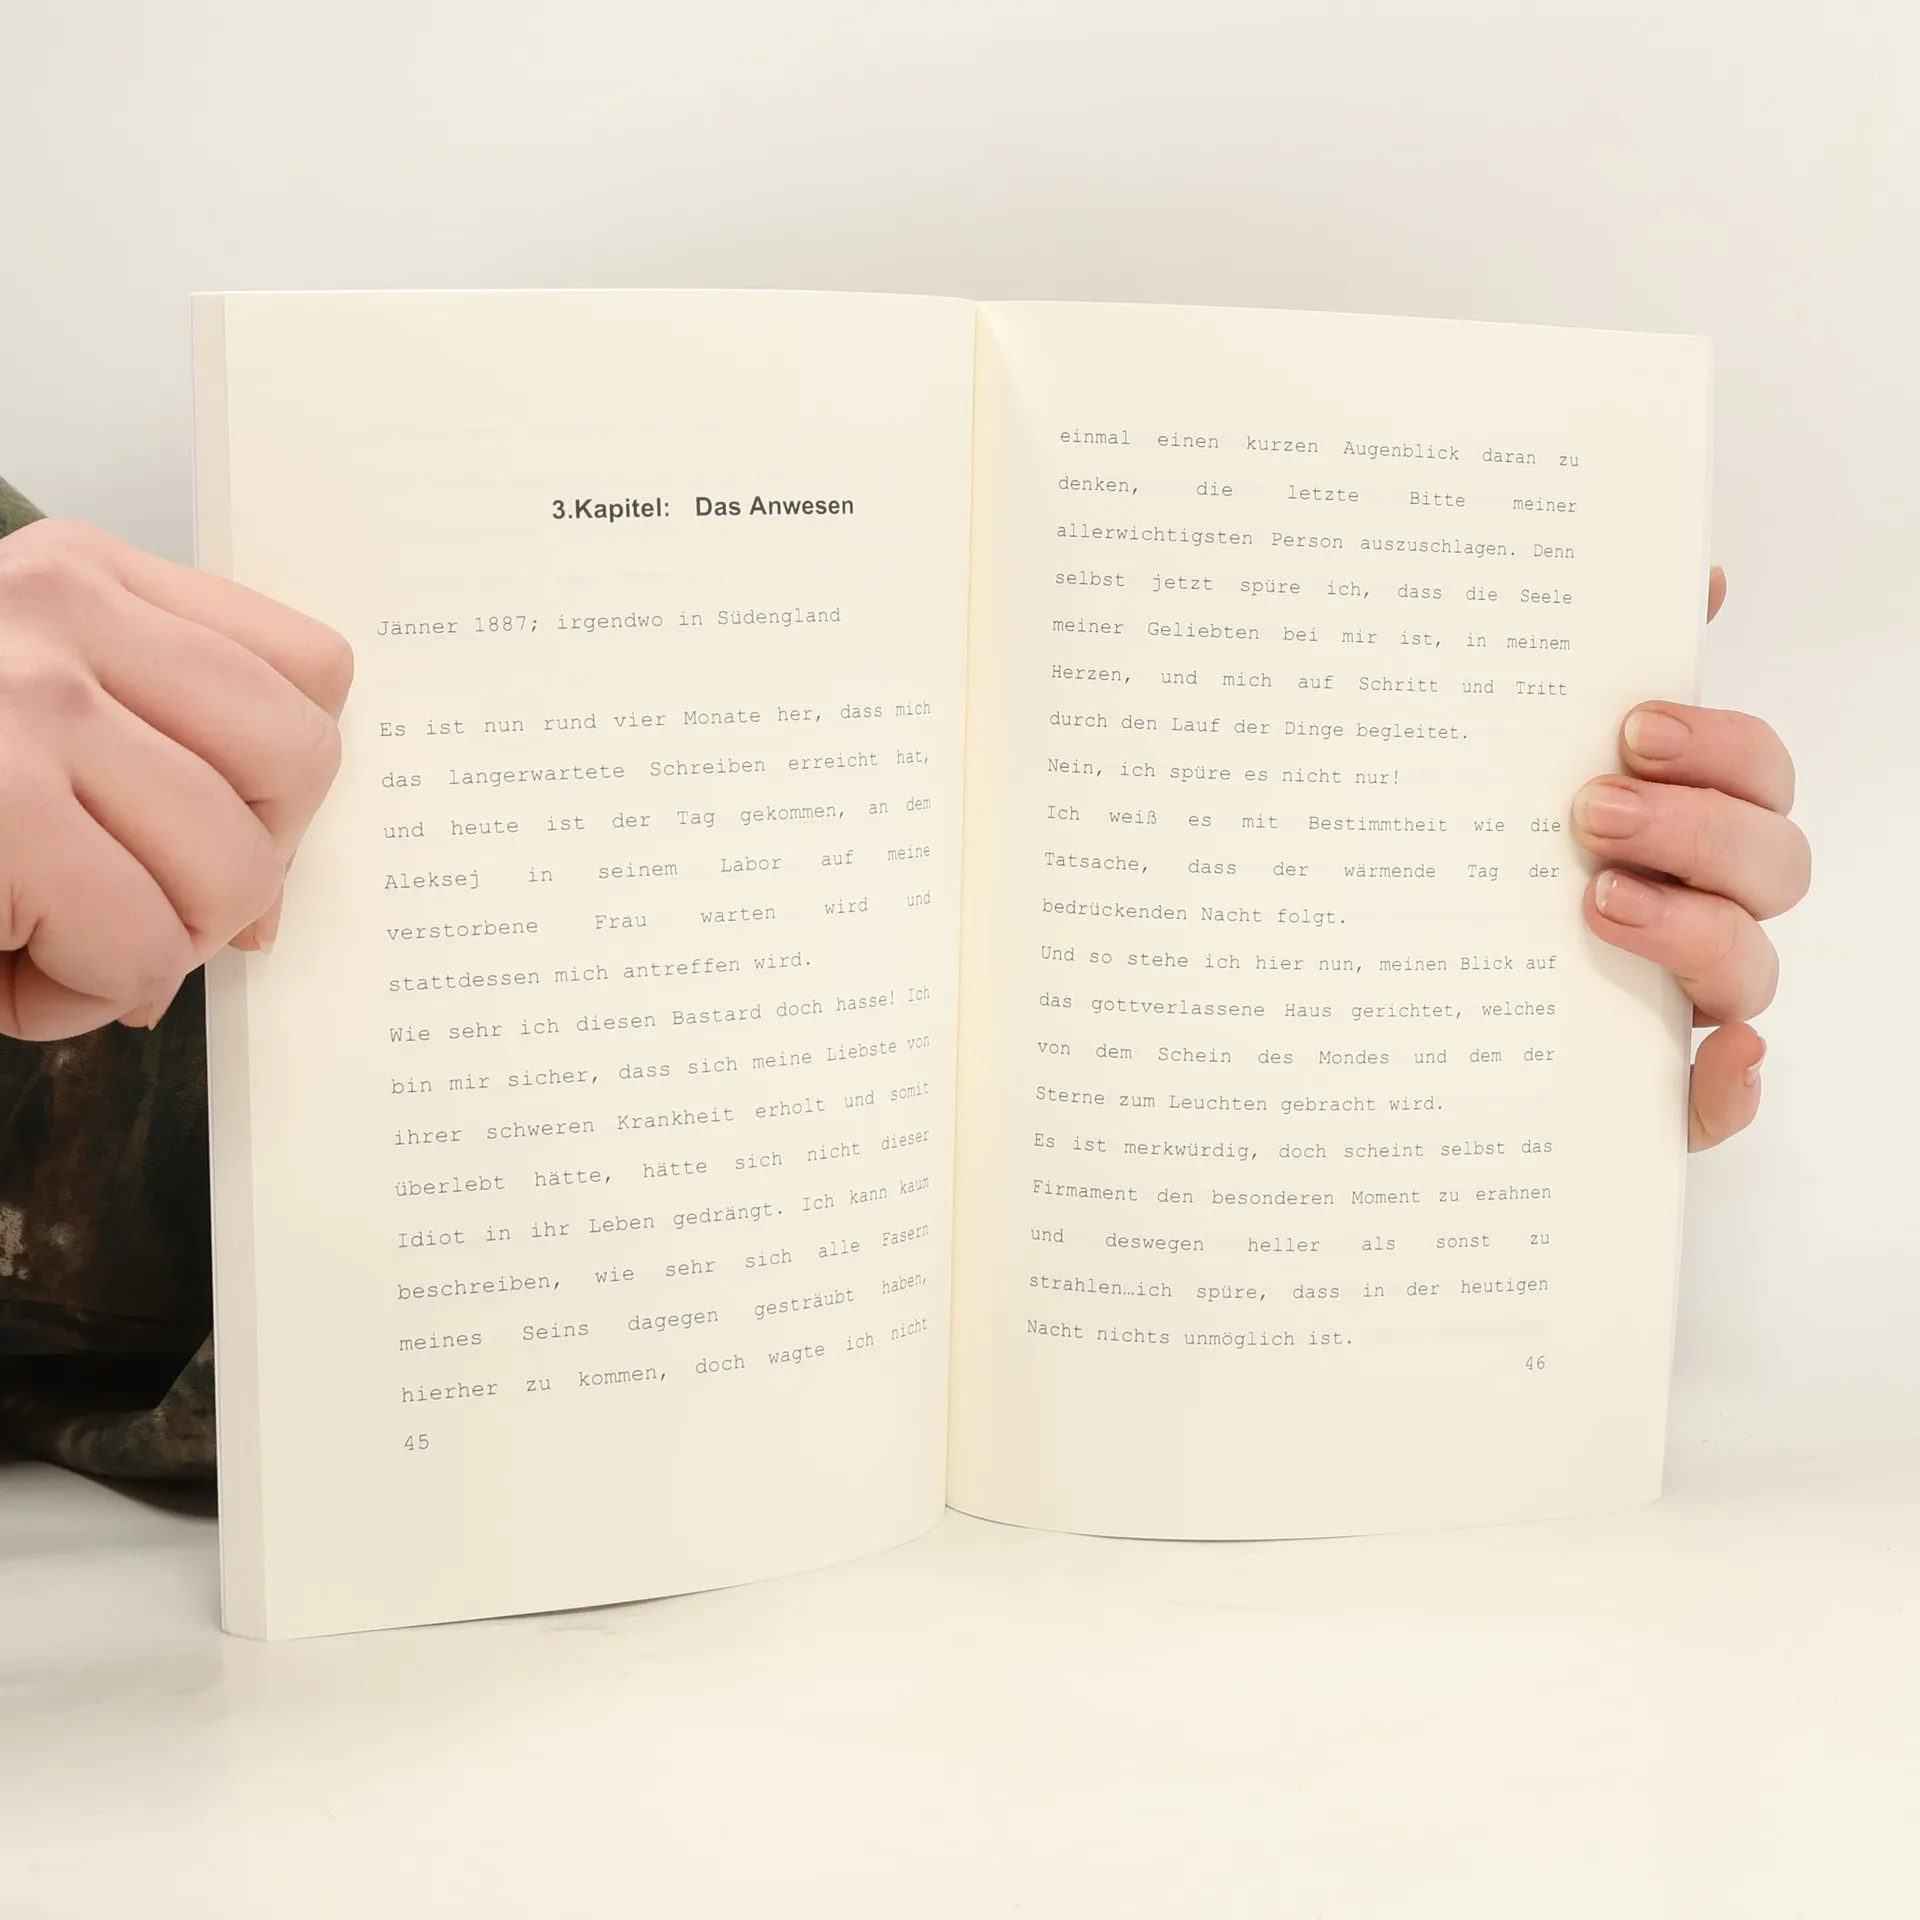 3.Kapitel: Das Anwesen
Jänner 1887; irgendwo in Südengland
Es ist nun rund vier Monate her, dass mich
das langerwartete Schreiben erreicht hat,
und heute ist der Tag gekommen, an dem
Aleksej in seinem Labor auf meine
verstorbene Frau warten wird und
stattdessen mich antreffen wird.
Wie sehr ich diesen Bastard doch hasse! Ich
bin mir sicher, dass sich meine Liebste von
ihrer schweren Krankheit erholt und somit
überlebt hätte, hätte sich nicht dieser
Idiot in ihr Leben gedrängt. Ich kann kaum
beschreiben, wie sehr sich alle Fasern
meines Seins dagegen gesträubt haben,
hierher zu kommen, doch wagte ich nicht
45
einmal einen kurzen Augenblick daran zu
denken, die letzte Bitte meiner
allerwichtigsten Person auszuschlagen. Denn
selbst jetzt spüre ich, dass die Seele
meiner Geliebten bei mir ist, in meinem
Herzen, und mich auf Schritt und Tritt
durch den Lauf der Dinge begleitet.
Nein, ich spüre es nicht nur!
Ich weiß es mit Bestimmtheit wie die
Tatsache, dass der wärmende Tag der
bedrückenden Nacht folgt.
Und so stehe ich hier nun, meinen Blick auf
das gottverlassene Haus gerichtet, welches
von dem Schein des Mondes und dem der
Sterne zum Leuchten gebracht wird.
Es ist merkwürdig, doch scheint selbst das
Firmament den besonderen Moment zu erahnen
und deswegen heller als sonst zu
strahlen…ich spüre, dass in der heutigen
Nacht nichts unmöglich ist.
46